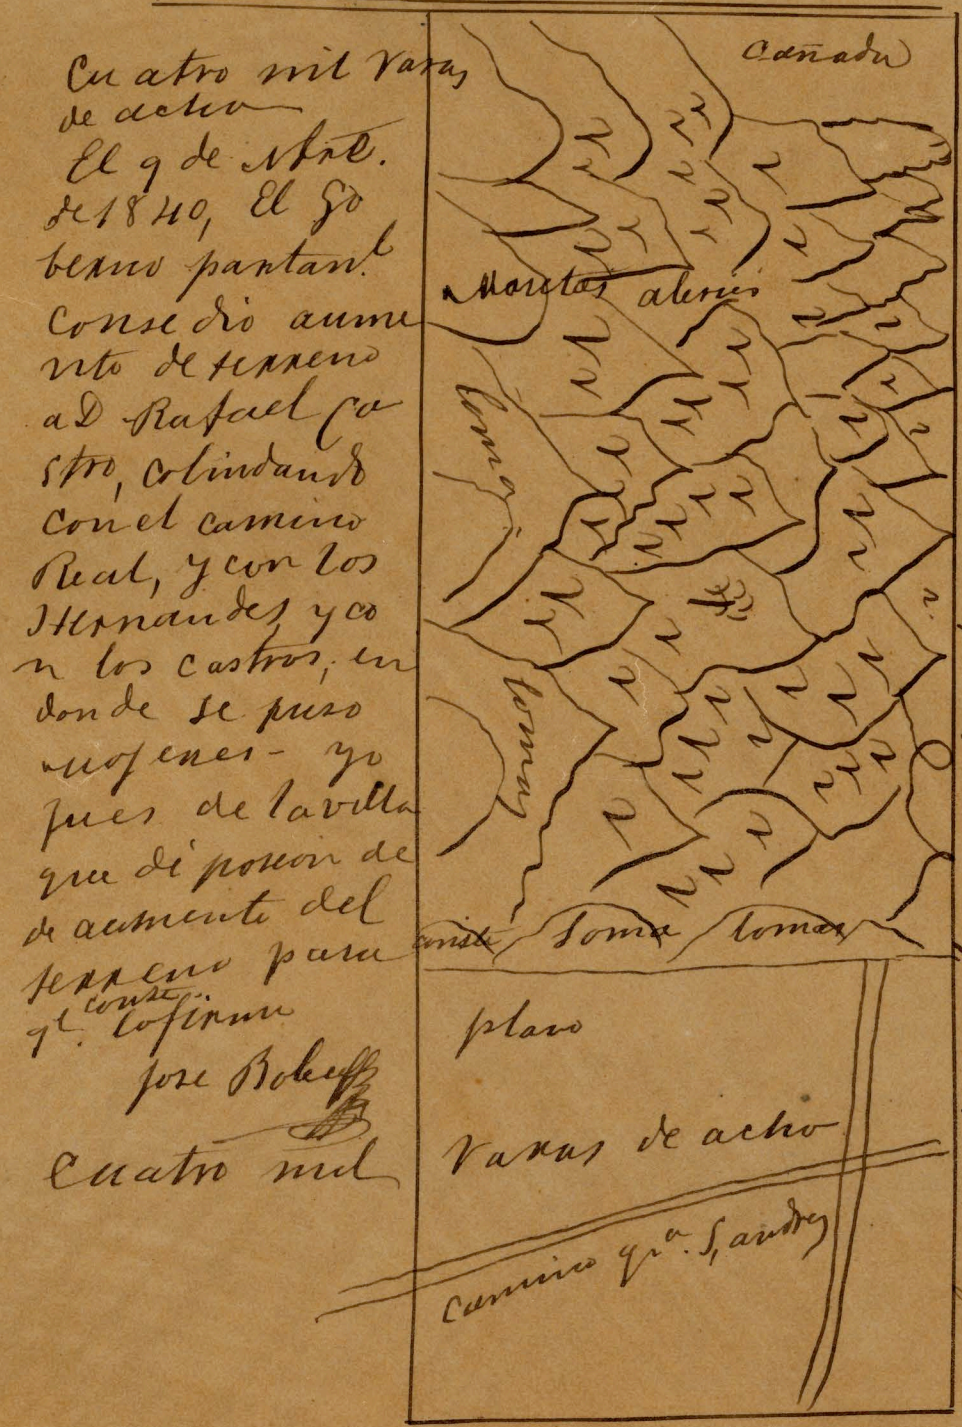 Cuatro mil Varas
de acho
El 9 de Nbre.
de 1840, El Go
berno partan.l
Consedio aume
nto de terreno
a D Rafael Ca
stro, colindando
con el camino
Real, y con los
Hernandes, y co
n los castros, en
donde se puso
mojenes - yo
jues de la villa
que di posion de
de aumento del
terreno para
conste
qe. lo firmo
Jose Bolcoff
Cuatro mil
cañada
alenis
lomas
lomas
Loma lomas
plano
Varas de acho
Camino qra. S, andres